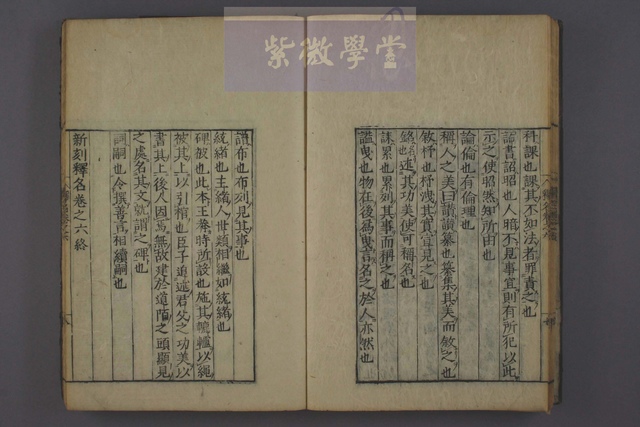 紫微學堂
科課也課其不如法者罪責之也
詔書詔昭也人暗不見事宜則有所犯以此
示之使昭然知所由也
論倫也有倫理也
稱人之美曰讚讚纂也纂集其美而敘之也
敘杼也杼洩其實宣見之也
銘名也述其功美使可稱名也
誄累也累列其事而稱之也
謚曳也物在後為曳言名之於人亦然也
譜布也布列見其事也
統緒也主緒人世類相繼如統緒也
碑被也此本王莽時所設也施其轆轤以繩
被其上以引棺也臣子追述君父之功美以
書其上後人因焉無故建於道陌之頭顯見
之處名其文就謂之碑也
詞嗣也令撰善言相續嗣也
新刻釋名卷之六終